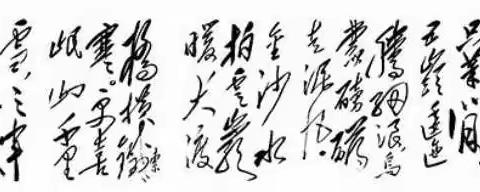 只等闲
五嶺逶迤
腾细浪烏
蒙磅礴
走泥丸
金沙水
拍雲崖
暖大渡
橋横鐵索
寒。更喜
岷山千里
雪三軍